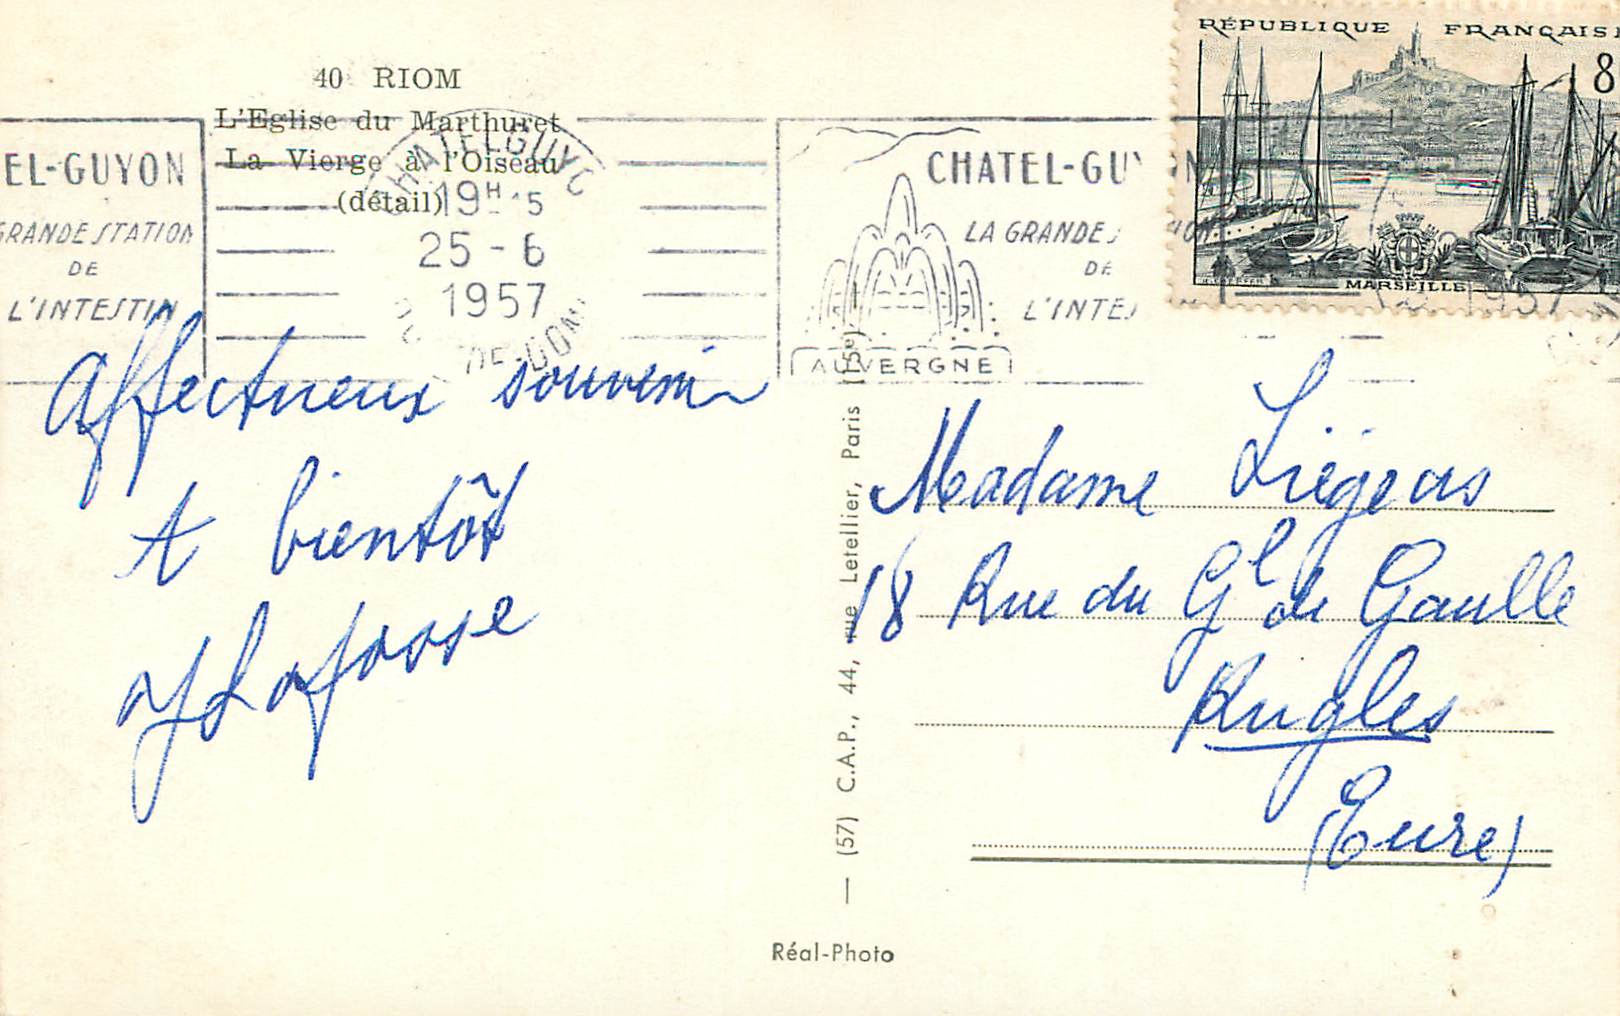 40 RIOM
L'Eglise du Marthuret
La Vierge à l'Oiseau
(détail)
EL-GUYON
GRANDE STATION
DE
L'INTESTIN
CHATELGUYO
19H 15
25 - 6
1957
DE-DOM
CHATEL-GUY N
LA GRANDE S ION
DE
L'INTES
AUVERGNE
RÉPUBLIQUE FRANÇAISE
8
MARSEILLE
1957
Affectueux souvenir
A bientôt
Lafosse
Madame Liégeois
18 Rue du Gl de Gaulle
Rugles
(Eure)
— (57) C.A.P., 44, rue Letellier, Paris (15e) —
Réal-Photo